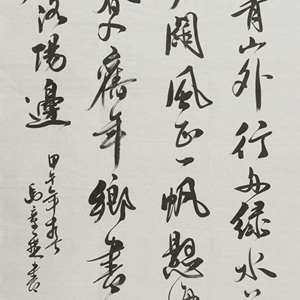 青山外行舟綠水
闊風正一帆懸海
春入舊年鄉書
洛陽邊
甲午年
書